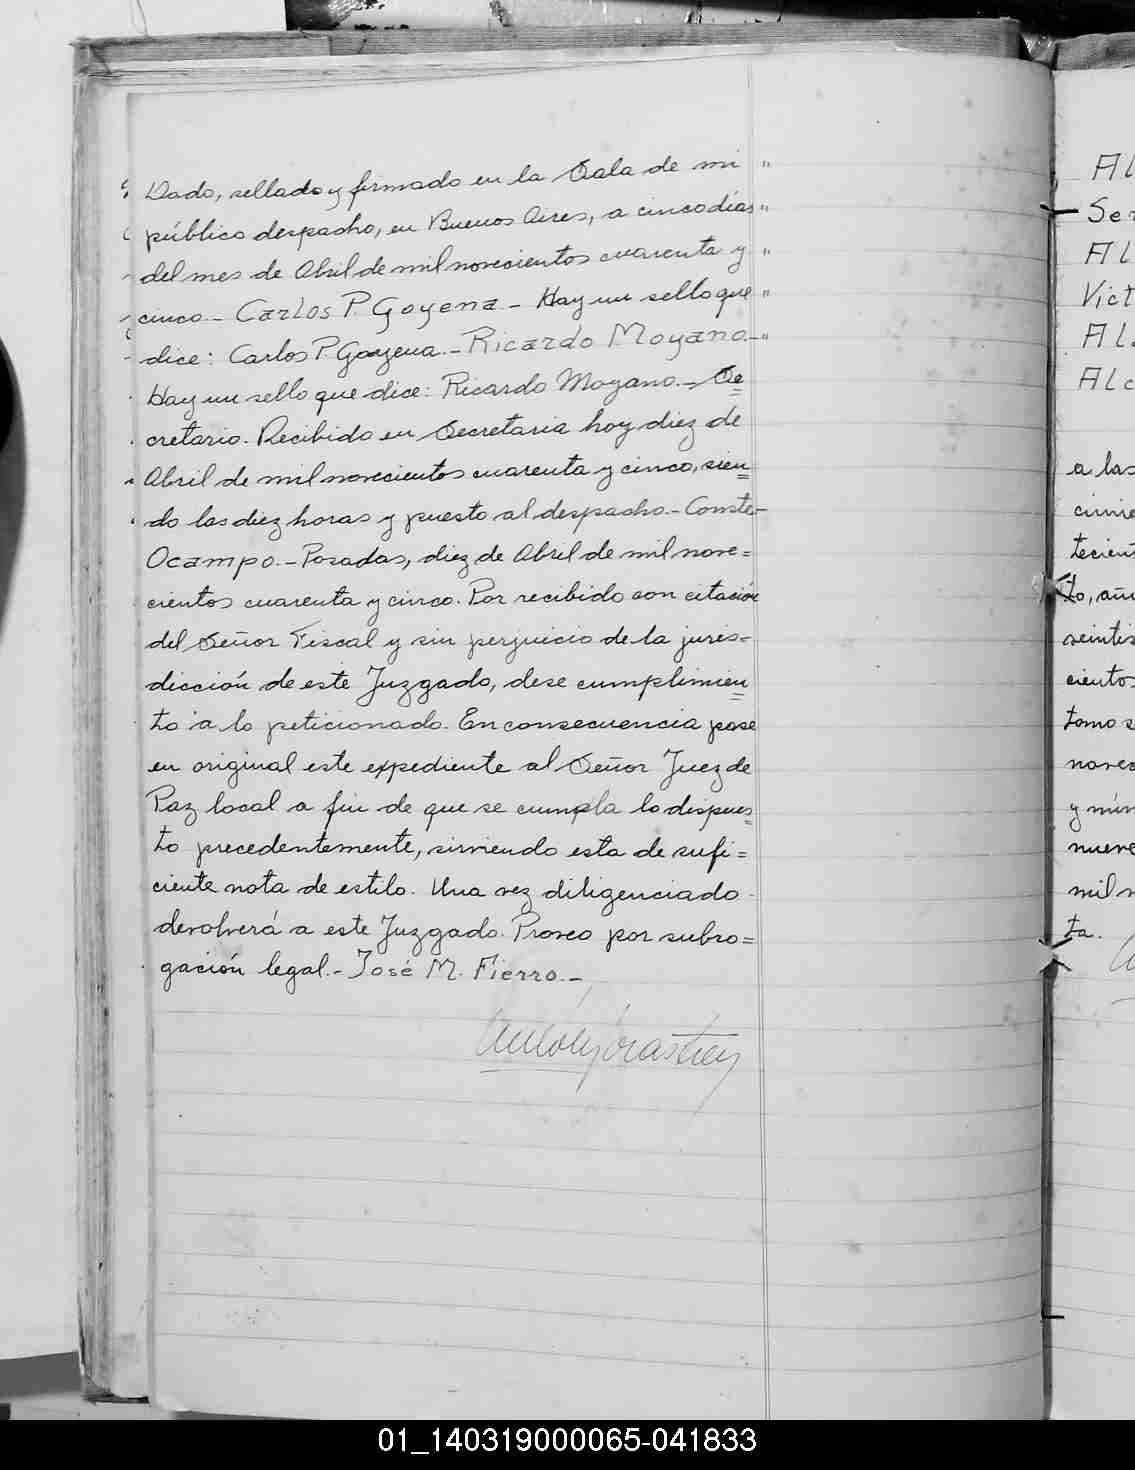 Dado, sellado y firmado en la Sala de mi "
público despacho, en Buenos Aires, a cinco días "
del mes de Abril de mil novecientos cuarenta y "
cinco.- Carlos P. Goyena - Hay un sello que "
dice: Carlos P. Goyena.- Ricardo Moyano.- "
Hay un sello que dice: Ricardo Moyano.- Se=
cretario. Recibido en Secretaria hoy diez de
Abril de mil novecientos cuarenta y cinco, sien=
do las diez horas y puesto al despacho.- Conste-
Ocampo.- Posadas, diez de Abril de mil nove=
cientos cuarenta y cinco. Por recibido con citación
del Señor Fiscal y sin perjuicio de la juris=
dicción de este Juzgado, dese cumplimien=
to a lo peticionado. En consecuencia pase
en original este expediente al Señor Juez de
Paz local a fin de que se cumpla lo dispues=
to precedentemente, sirviendo esta de sufi=
ciente nota de estilo. Una vez diligenciado
devolverá a este Juzgado. Proveo por subro=
gación legal.- José M. Fierro.-
Al
Se
Al
Vict
Al
Alc
a las
tecien
to, añ
cientos
tomo s
y
nueve
mil n
ta.
01_140319000065-041833